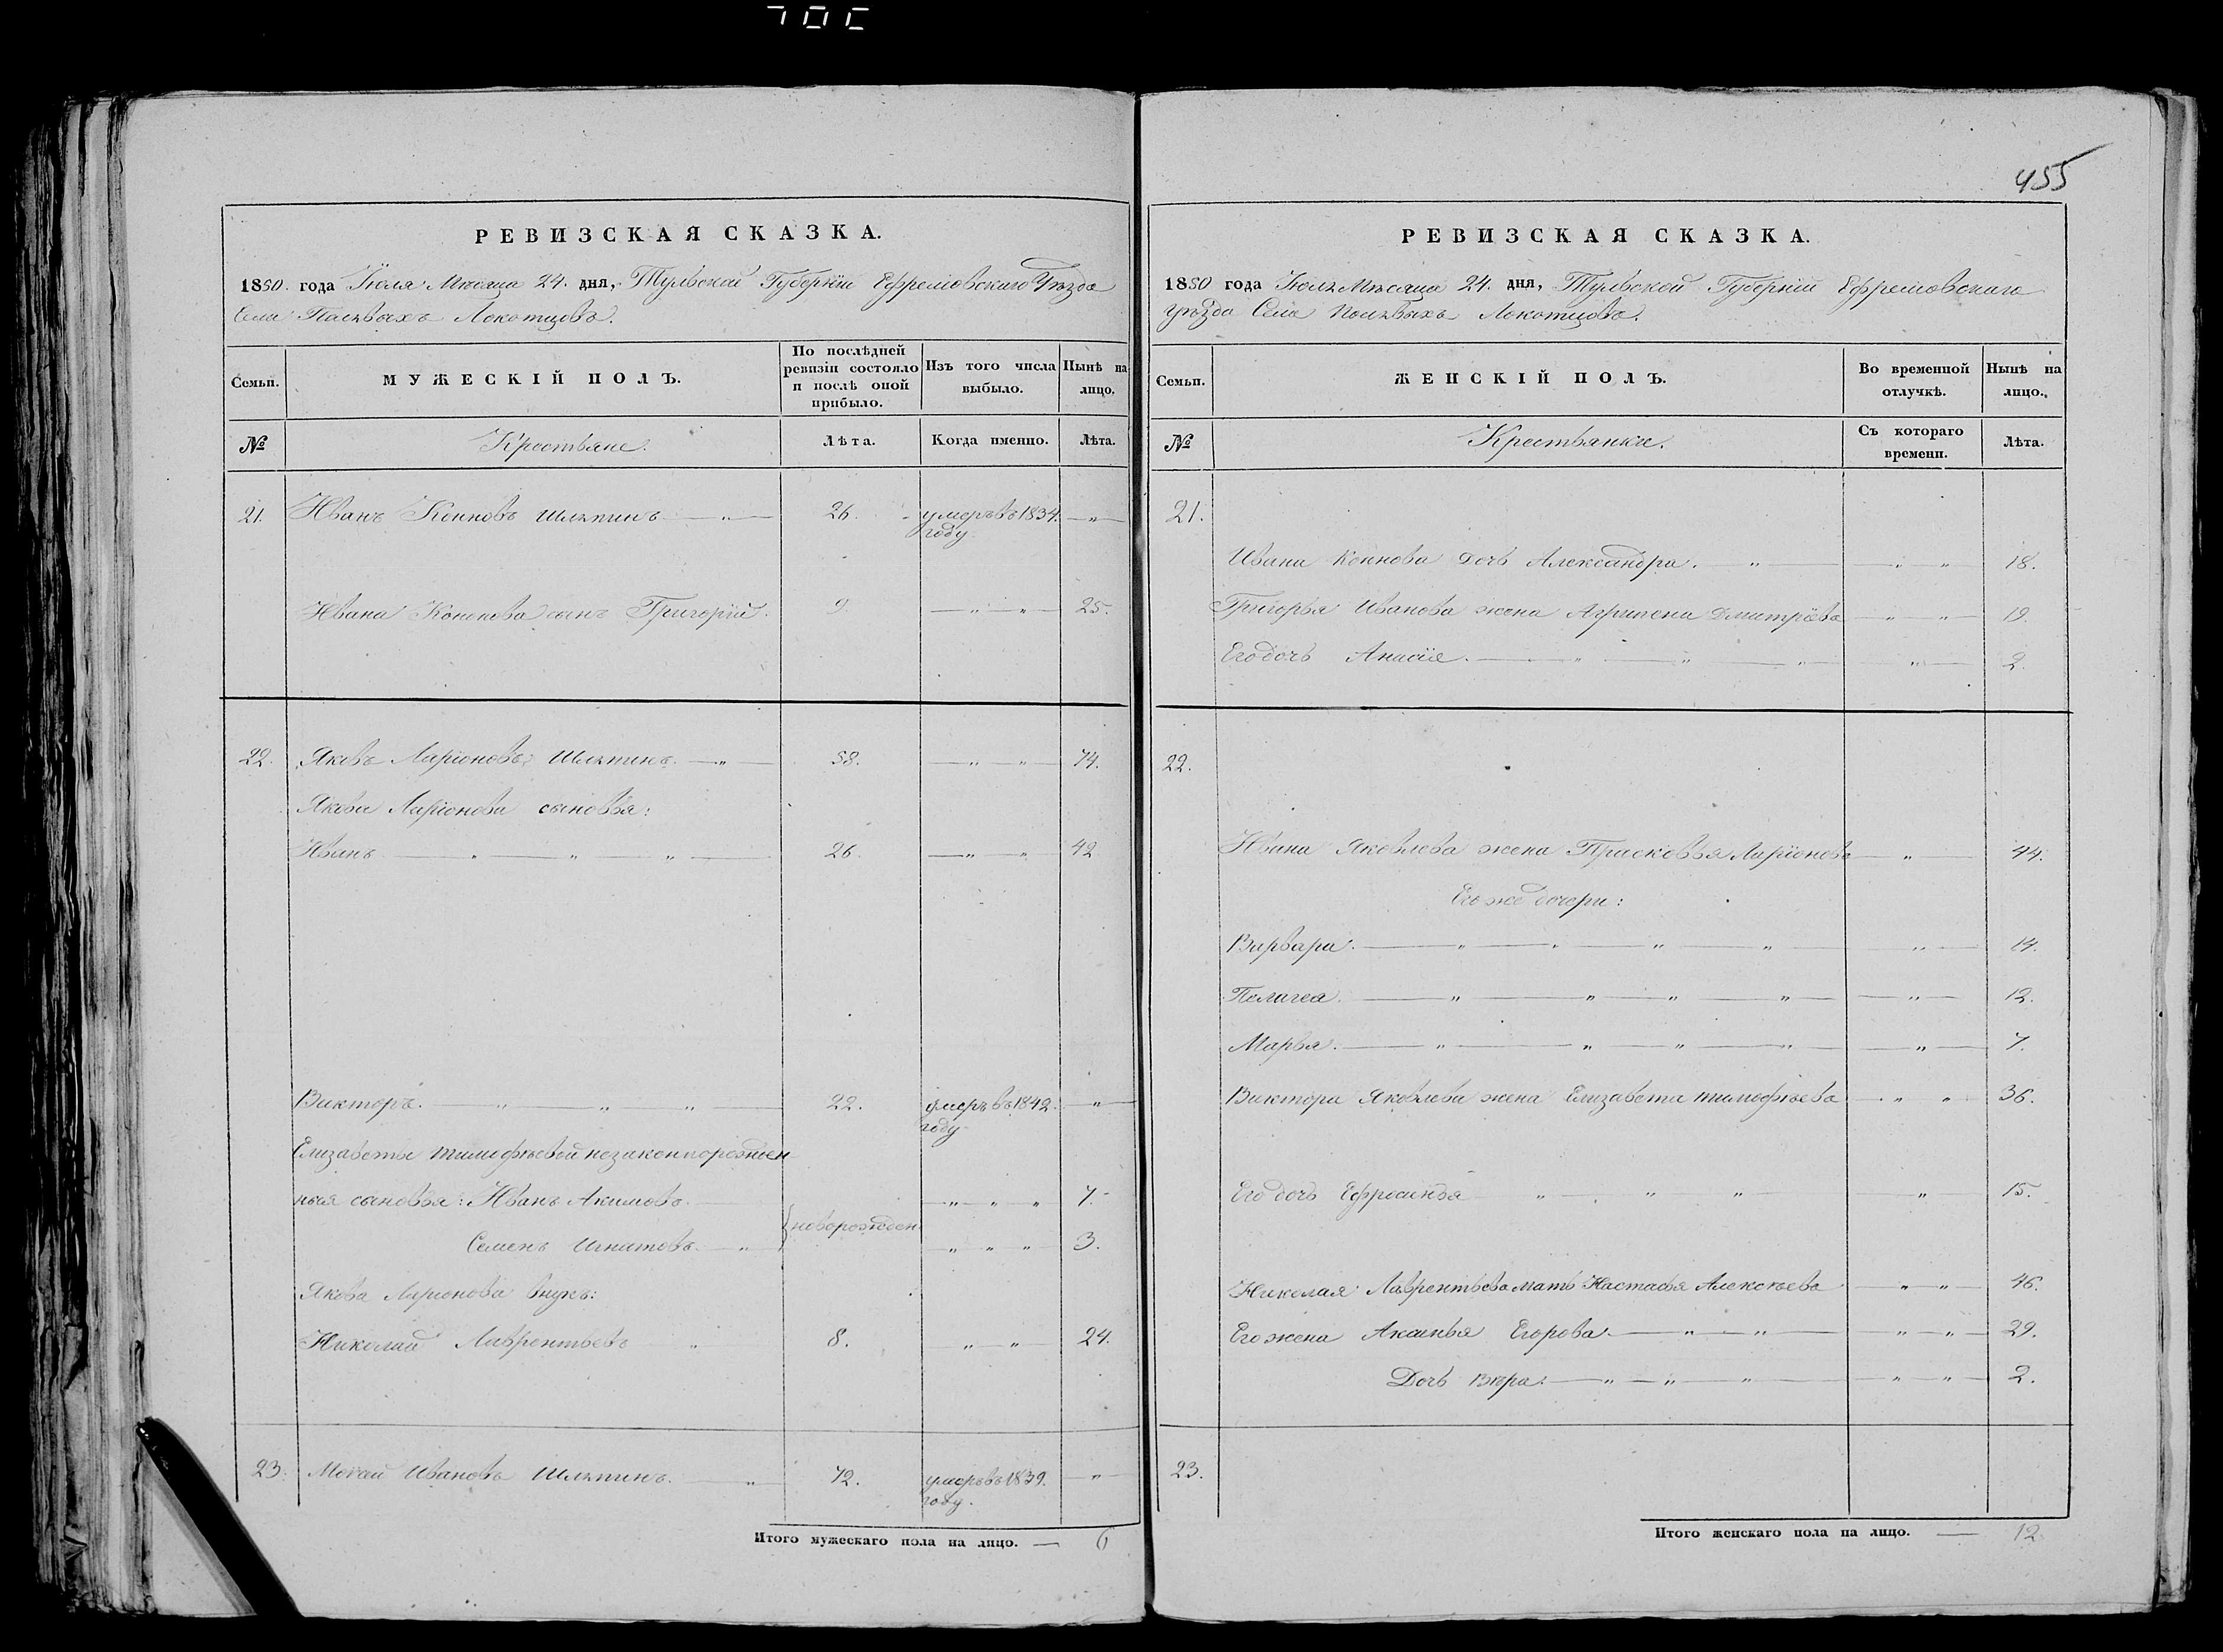 455
РЕВИЗСКАЯ СКАЗКА.
1850. года Іюля Мѣсяца 24. дня, Тульской Губерніи Ефремовскаго Уѣзда
Села Полѣвыхъ Локотцовъ.
Семьи.
МУЖЕСКІЙ ПОЛЪ.
По послѣдней ревизіи состояло и послѣ оной прибыло.
Изъ того числа выбыло.
Нынѣ на лицо.
№ Крестьяне. Лѣта. Когда именно. Лѣта.
21. Иванъ Коновъ Шляпинъ — „ — 26. умеръ въ 1834. — „ —
году
Ивана Конова сынъ Григорій. 9 — „ „ — 25.
22. Яковъ Ларіоновъ Шляпинъ. — „ — 58. — „ „ — 74.
Якова Ларіонова сыновья:
Иванъ — „ — „ — „ — 26. — „ „ 42
Викторъ. — „ — „ — „ — 22. умеръ въ 1842. — „ —
году
Елизаветы Тимофѣевой незаконнорожден
ныя сыновья: Иванъ Акимовъ. — „ „ „ 7.
новорожден
Семенъ Игнатовъ. — „ „ „ „ 3.
Якова Ларіонова внукъ:
Николай Лаврентьевъ „ 8. „ — „ — 24.
23. Мокей Ивановъ Шляпинъ. — „ — 72. умеръ въ 1839. — „ —
году.
Итого мужескаго пола на лицо. — 6
РЕВИЗСКАЯ СКАЗКА.
1850 года Іюля Мѣсяца 24. дня, Тульской Губерніи Ефремовскаго
уѣзда Села Полѣвыхъ Локотцовъ.
Семьи.
ЖЕНСКІЙ ПОЛЪ.
Во временной отлучкѣ.
Нынѣ на лицо.
№ Крестьянки. Съ котораго времени. Лѣта.
21.
Ивана Конова дочь Александра. — „ — — „ „ — 18.
Григорья Иванова жена Агрипена Дмитріева — „ — „ — 19.
Его дочь Анасія. — „ — „ — „ — „ — 2.
22.
Ивана Яковлева жена Прасковья Ларіонова — „ — 44.
Его же дочери:
Варвара. — „ — „ — „ — „ — „ — 14.
Пелагея. — „ — „ — „ — „ — — „ — 12.
Марья. — „ — „ — „ — „ — — „ — 7.
Виктора Яковлева жена Елизавета Тимофѣева — „ „ — 36.
Его дочь Ефросинья — „ — „ — „ „ — 15.
Николая Лаврентьева мать Настасья Алексѣева — „ „ — 46.
Его жена Аксинья Егорова. — „ — „ — „ — „ — 29.
Дочь Вѣра. — „ — „ — „ — „ „ — 2.
23.
Итого женскаго пола на лицо. — 12